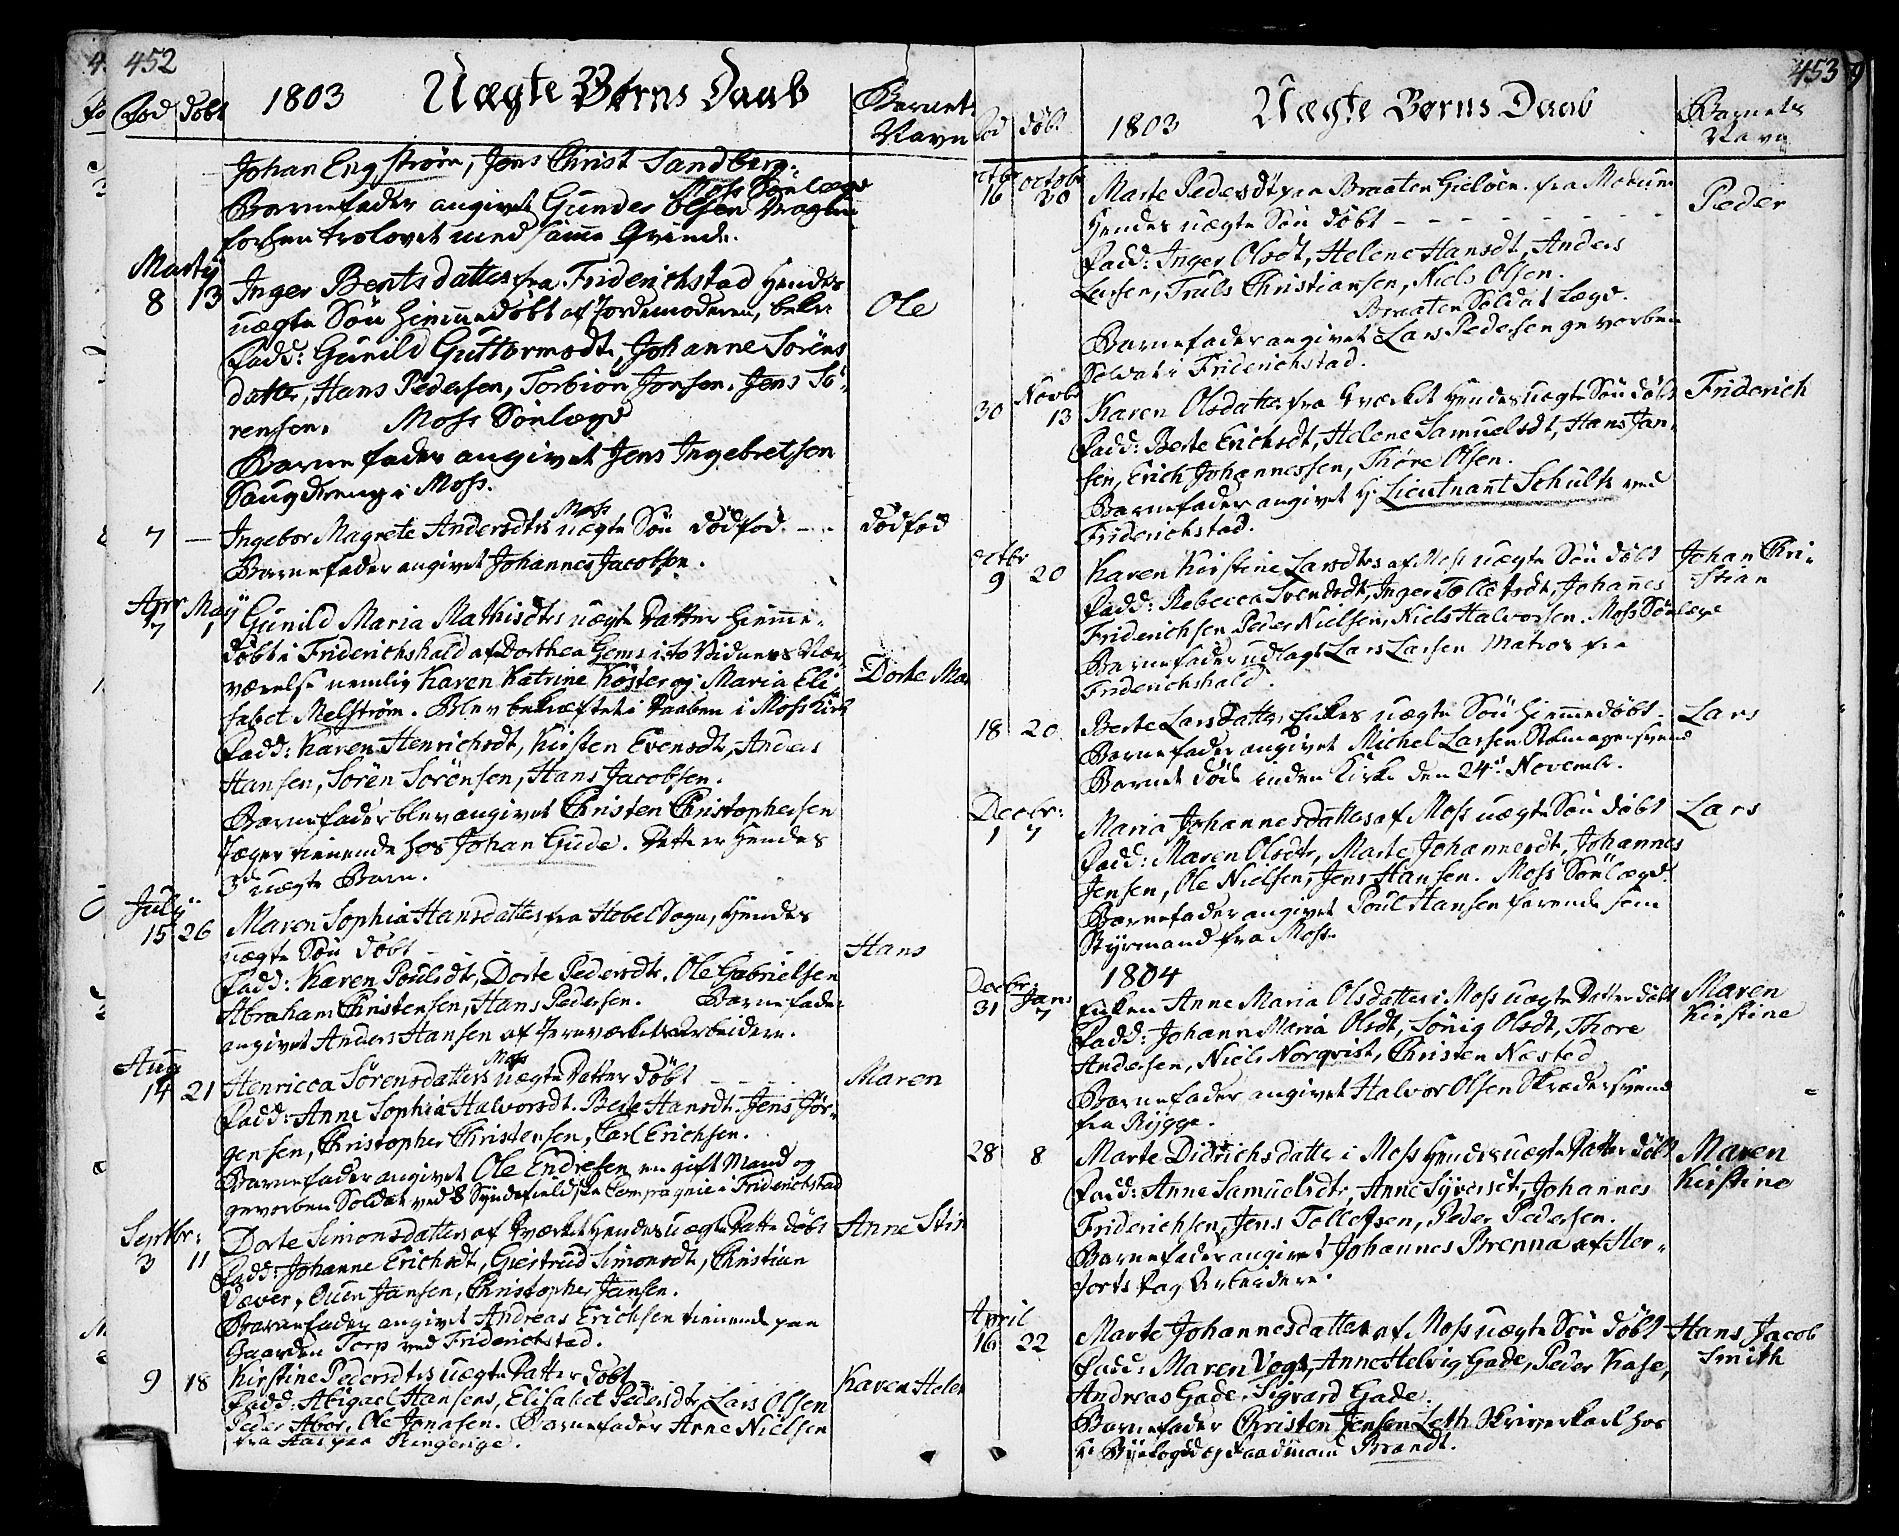 452
Fød døbt 1803 Uægte Børns Daab Barnets
Navn
Johan Engstrøm, Jens Christ Sandberg.
Moss Sønlægd
Barnefader angivet Gunder Olsen
forhen trolovet med samme Qvinde.
Martÿ
8 13 Inger Bentsdatter fra Friderichstad hendes
uægte Søn hiemmedøbt af Jordemoderen, bekr:
Ole
Fadd: Gunild Guttormsdt, Johanne Sörens
datter, Hans Pedersen, Torbiön Jonsen, Jens Sö-
rensen. Moss Sönlægd
Barnefader angivet Jens Ingebretsen
Saugdreng i Moss.
7 — Ingebor Magrete Andersdtrs Moss uægte Søn dödfød. dödfød
Barnefader angivet Johannes Jacobsen.
Apr Maÿ
7 1 Gunild Maria Mathisdtrs uægte Datter hiemme-
döbt i Friderichshald af Dorthea Gems i to Vidners Nær-
værelse nemlig Karen Katrine Köster og Maria Eli- Dorte Mar
sabet Melström. Blev bekræftet i Daaben i Moss Kirke
Fadd: Karen Henrichsdt, Kirsten Evensdt, Anders
Hansen, Sören Sörensen, Hans Jacobsen.
Barnefader blev angivet Christen Christophersen
Jæger tienende hos Johan Gude. Dette er hendes
3d uægte Barn.
Julÿ
15 26 Maren Sophia Hansdatter fra Hobel Sogn, hendes
uægte Søn döbt Hans
Fadd: Karen Poulsdt, Dorte Pedersdtr, Ole Gabrielsen
Abraham Christensen, Hans Pedersen. Barnefader
angivet Anders Hansen af Jernværkets Arbeidere.
Aug
14 21 Henricca Sörensdatters Moss uægte Datter döbt Maren
Fadd: Anne Sophia Halvorsdt. Berte Hansdt. Jens Jör-
gensen, Christopher Christensen, Carl Erichsen.
Barnefader angivet Ole Endresen en gift Mand og
gevorben Soldat ved Syndefieldske Compagnie i Friderichstad
Septbr:
3 11 Dorte Simonsdatter af Værket hendes uægte Datter döbt Anne Stin
Fadd: Johanne Erichsdt, Giertrud Simonsdt, Christian
Væver, Ouen Jansen, Christopher Jansen.
Barnefader angivet Andreas Erichsen tienende paa
Gaarden Torp ved Friderichstad.
9 18 Kirstine Pedersdtrs uægte Datter döbt Karen Helen
Fadd: Abigael Hansens, Elisabet Pedersdtr, Lars Olsen
Peder Abor, Ole Jonasen. Barnefader Arne Nielsen
fra Aas paa Ringerige.
453
Fød döbt 1803 Uægte Børns Daab Barnets
Navn
octbr octobr
16 30 Marte Pedersdt paa Braaten Gielöen fra Modum Peder
hendes uægte Sön döbt
Fadd: Inger Olsdt, Helene Hansdt, Anders
Larsen, Truls Christiansen, Niels Olsen.
Braaten Soldat Lægd.
Barnefader angivet Lars Pedersen gevorben
Soldat i Friderichstad.
Novbr
30 13 Karen Olsdatter fra Værket hendes uægte Sön döbt Friderich
Fadd: Berte Erichsdt, Helene Samuelsdt, Hans Jan-
sen, Erich Johannessen, Thöre Olsen.
Barnefader angivet H. Lieutnant Schultz ved
Friderichstad.
octbr
9 20 Karen Kirstine Larsdtrs af Moss uægte Sön döbt Johan Chri-
stian
Fadd: Rebecca Svendsdt, Inger Tollefsdt, Johannes
Friderichsen Peder Nielsen, Niels Halvorsen. Moss Sönlægd
Barnefader udlagt Lars Larsen Matros fra
Friderichshald.
18 20 Berte Larsdatter Enkes uægte Sön hiemmedöbt Lars
Barnefader angivet Michel Larsen
Barnet döde inden Kirke den 24de Novembr.
Decbr:
1 7 Maria Johannesdatter af Moss uægte Sön döbt Lars
Fadd: Maren Olsdtr, Marte Johannesdt, Johannes
Jensen, Ole Nielsen, Jens Hansen. Moss Sönlægd.
Barnefader angivet Poul Hansen farende som
Styrmand fra Moss.
1804
Decbr: Jan:
31 7 Enken Anne Maria Olsdatter i Moss uægte Datter döbt Maren
Kirstine
Fadd: Johann Maria Olsdt, Sönig Olsdt, Thore
Andersen, Niels Norqvist, Christen Næsted
Barnefader angivet Halvor Olsen Skrædersvend
fra Rygge.
28 8 Marte Didrichsdatter i Moss hendes uægte Datter döbt Maren
Kirstine
Fadd: Anne Samuelsdtr, Anne Syversdt, Johannes
Friderichsen, Jens Tollefsen, Peder Pedersen.
Barnefader angivet Johannes Brenna af
Arbeidere.
April
16 22 Marte Johannesdatter af Moss uægte Sön döbt Hans Jacob
Smith
Fadd: Maren Vogt, Anne Helvig Gade, Peder Kase,
Andreas Gade, Sigvard Gade
Barnefader Christen Jensen Leth Skriverkarl hos
Hr Byefoged og Raadmand Brandt.